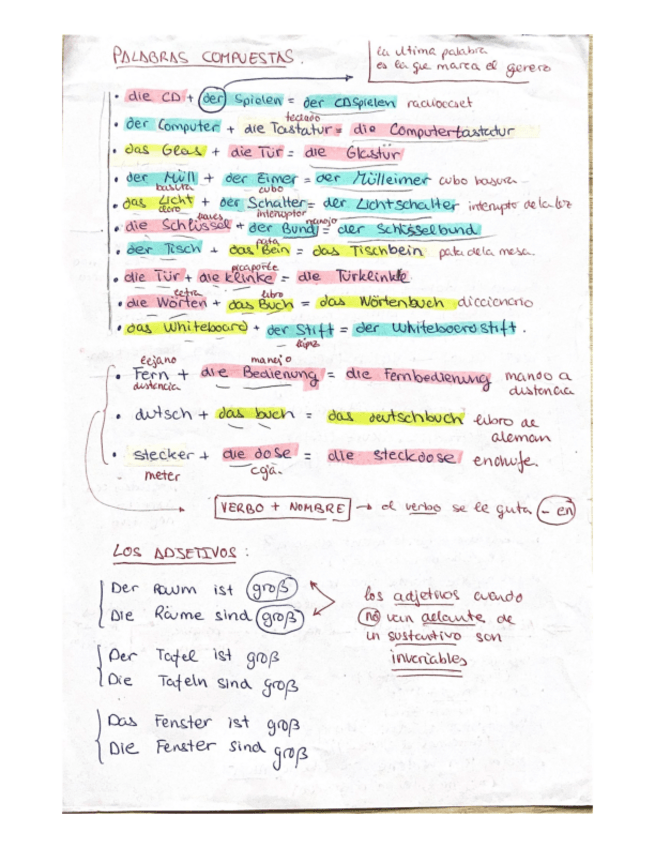 PALABRAS COMPUESTAS.
la ultima palabra
es la que marca el genero
• die CD + der Spielen = der CDSpielen radiocaset
teclado
• der Computer + die Tastatur = die Computertastatur
• das Glas + die Tür = die Glastür
• der Müll + der Eimer = der Mülleimer cubo basura
basura cubo
• das Licht + der Schalter = der Lichtschalter interruptor de la luz
claro interruptor
llaves manojo
• die Schlüssel + der Bund = der Schlüsselbund
pata
• der Tisch + das Bein = das Tischbein pata de la mesa.
picaporte
• die Tür + die Klinke = die Türklinke
letra libro
• die Wörten + das Buch = das Wörtenbuch diccionario
• das Whiteboard + der Stift = der Whiteboardstift.
lápiz
lejano manejo
• Fern + die Bedienung = die Fernbedienung mando a
distancia distancia
• dutsch + das buch = das deutschbuch libro de
aleman
• stecker + die dose = die steckdose enchufe.
meter caja.
VERBO + NOMBRE → el verbo se le quita (-en)
LOS ADJETIVOS:
Der Raum ist groß
Die Räume sind groß
los adjetivos cuando
no van delante de
un sustantivo son
invariables
Der Tafel ist groß
Die Tafeln sind groß
Das Fenster ist groß
Die Fenster sind groß